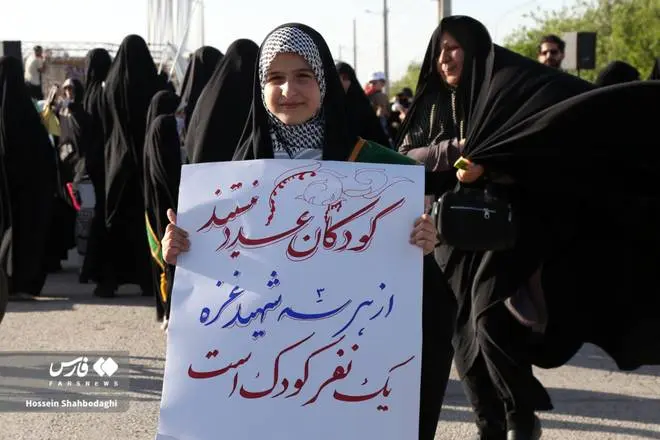 کودکان عدد نیستند
از هر سه شهید غزه
یک نفر کودک است
فارس
FARSNEWS
Hossein Shahbodaghi